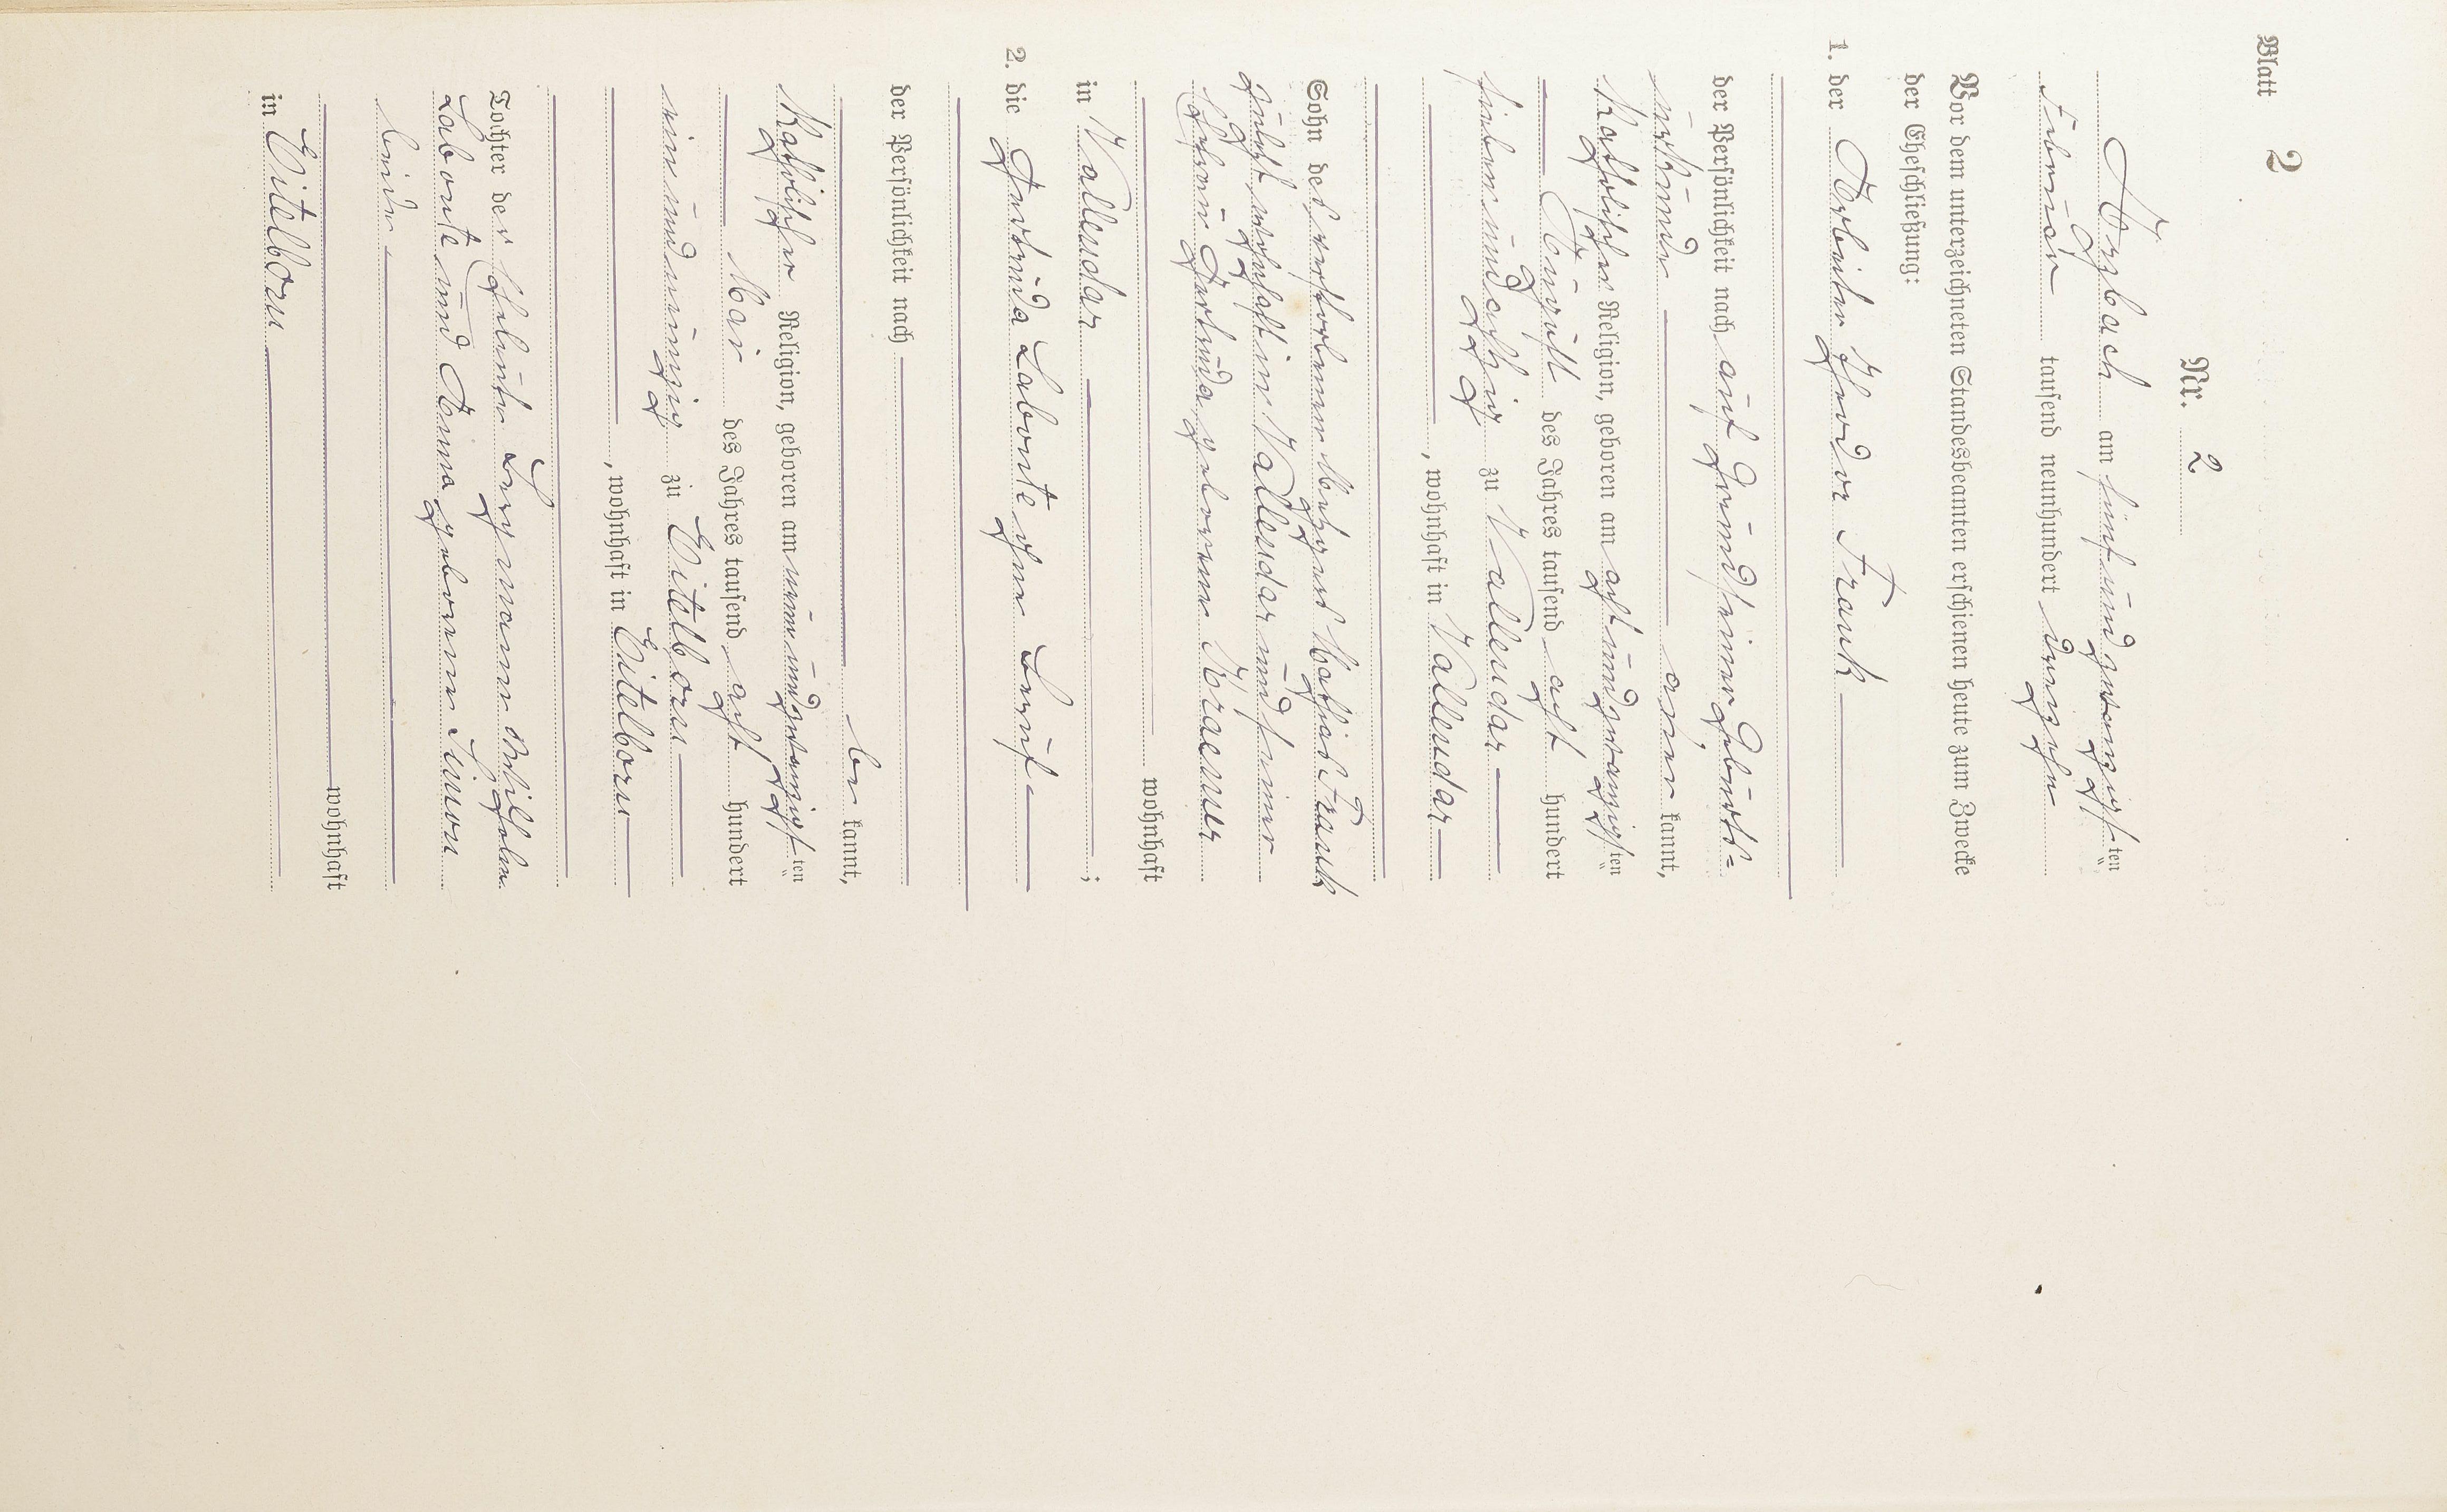 Blatt 2
Nr. 2
Arzbach am fünfundzwanzigsten
Februar tausend neunhundert dreizehn
Vor dem unterzeichneten Standesbeamten erschienen heute zum Zwecke
der Eheschließung:
1. der Arbeiter Theodor Frank
der Persönlichkeit nach auf Grund seiner Geburts-
urkunde aner kannt,
Katholischer Religion, geboren am achtundzwanzigsten
August des Jahres tausend acht hundert
siebenundachtzig zu Vallendar
, wohnhaft in Vallendar
Sohn des verstorbenen Metzgers Mathias Frank
zuletzt wohnhaft in Vallendar und seiner
Ehefrau Gertruda geborenen Kraemer
wohnhaft
in Vallendar ;
2. die Gertruda Labonte ohne Beruf
der Persönlichkeit nach
be kannt,
Katholischer Religion, geboren am neunundzwanzigsten
Mai des Jahres tausend acht hundert
einundneunzig zu Eitelborn
, wohnhaft in Eitelborn
Tochter der Eheleute Bergmann Wilhelm
Labonte und Anna geborenen Simon
beide
wohnhaft
in Eitelborn